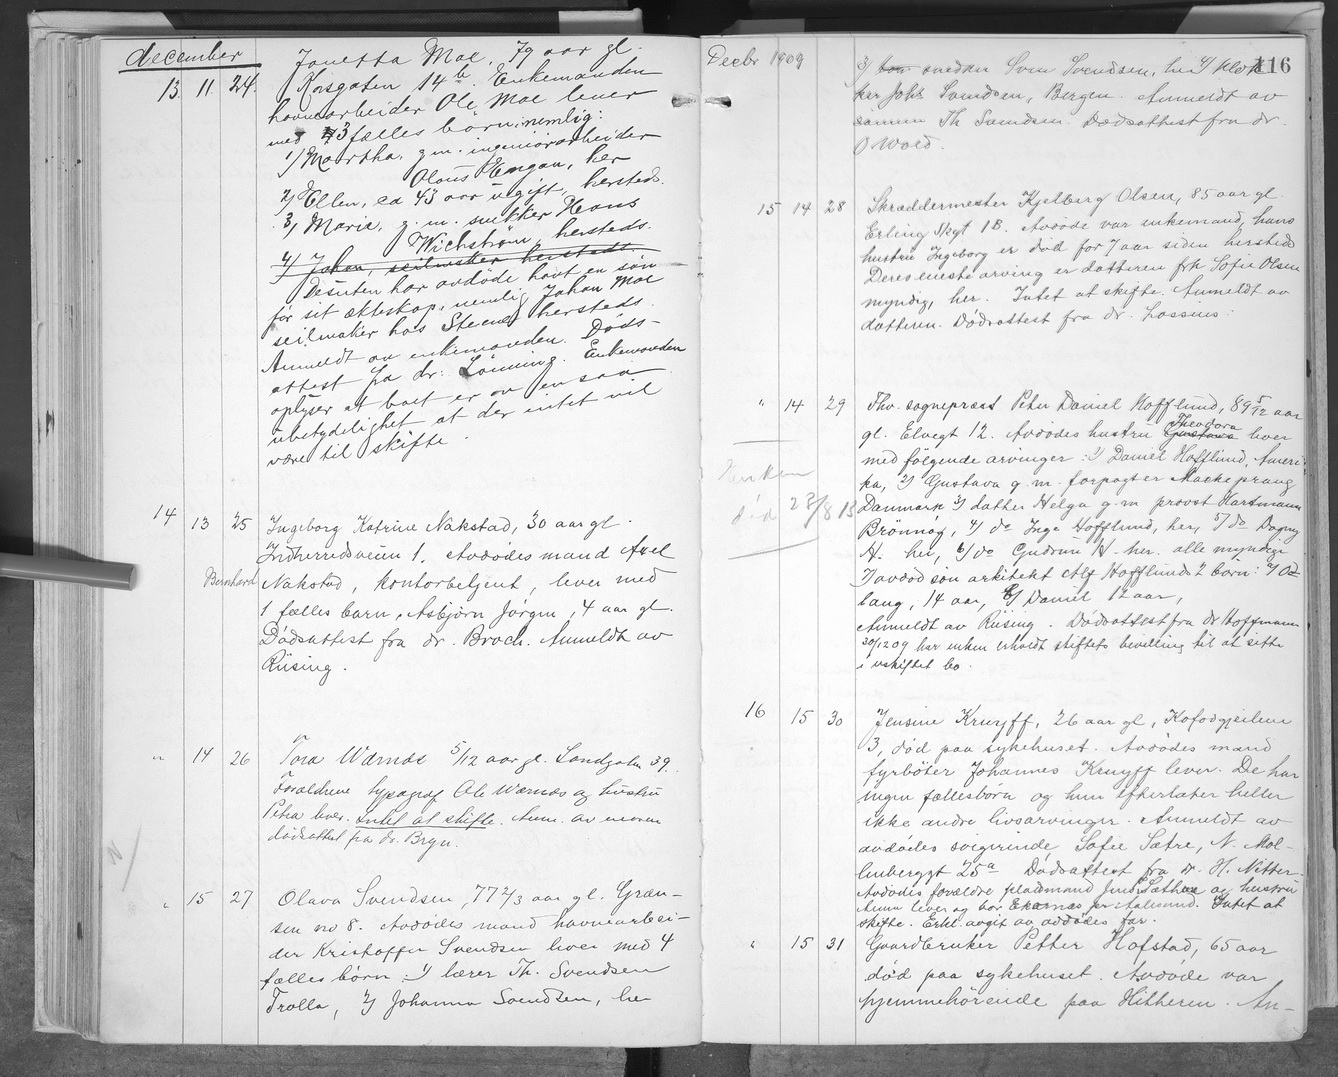 december
13 11 24. Janetta Moe, 79 aar gl.
Korsgaten 14b. Enkemanden
havnearbeider Ole Moe lever
med 3 fælles børn, nemlig:
1/ Martha, g.m. ingeniørarbeider
Olaus Engan, her
2/ Ellen, ca 43 aar ugift, hersteds.
3/ Marie, g. m. snekker Hans
Wichstrøm, hersteds.
4/ Johan, seilmaker hersteds.
Desuten har avdøde havt en søn
før sit ækteskap, nemlig Johan Moe
seilmaker hos Steene, hersteds.
Anmeldt av enkemanden. Døds-
attest fra dr. Lønning. Enkemanden
oplyser at boet er av en saa
ubetydelighet at der intet vil
være til skifte.
14 13 25 Ingeborg Katrine Nakstad, 30 aar gl.
Indherredsveien 1. Avdødes mand Axel
Bernhard Nakstad, kontorbetjent, lever med
1 fælles barn, Asbjørn Jørgen, 4 aar gl.
Dødsattest fra dr. Broch. Anmeldt av
Riising.
" 14 26 Tora Wærnæs 5/12 aar gl. Sandgaten 39.
Forældrene typograf Ole Wærnæs og hustru
Petra lever. Intet at skifte. Anm. av moren
dødsattest fra dr. Bryn.
" 15 27 Olava Svendsen, 77 2/3 aar gl. Græn-
sen no 8. Avdødes mand havnearbei-
der Kristoffer Svendsen lever med 4
fælles børn: 1/ lærer Th. Svendsen
Trolla, 2/ Johanna Svendsen, her
Decbr 1909
116
3/ snedker Sven Svendsen, her 4/ klok-
ker Johs Svendsen, Bergen. Anmeldt av
sønnen Th Svendsen. Dødsattest fra dr.
O Wold.
15 14 28 Skræddermester Kjelberg Olsen, 85 aar gl.
Erling Skgt 1B. Avdøde var enkemand, hans
hustru Ingeborg er død for 7 aar siden hersteds
Deres eneste arving er datteren frk Sofie Olsen
myndig, her. Intet at skifte. Anmeldt av
datteren. Dødsattest fra dr. Lossius.
" 14 29 Fhv. sognepræst Peter Daniel Hofflund, 89 5/12 aar
Theodora
gl. Elvegt 12. Avdødes hustru Gustava lever
med følgende arvinger: 1/ Daniel Hofflund, Ameri-
ka, 2/ Gustava g.m. forpagter Mackeprang
Danmark 3/ datter Helga g.m. provst Hartmann
Brönnöy, 4/ do Inga Hofflund, her, 5/ do Dagny
H. her, 6/ do Gudrun H. her. alle myndige
7/ avdød søn arkitekt Alf Hofflunds 2 børn: a/ Od-
laug, 14 aar, b/ Daniel 12 aar,
Anmeldt av Riising. Dødsattest fra dr Hoffmann
30/12 09 har enken erholdt stiftets bevilling til at sitte
i uskiftet bo.
Enken
død 23/8 13
16 15 30 Jensine Kruyff, 26 aar gl, Kofodgjeilen
3, død paa sykehuset. Avdødes mand
fyrbøter Johannes Kruyff lever. De har
ingen fællesbørn og hun efterlater heller
ikke andre livsarvinger. Anmeldt av
avdødes svigerinde Sofie Sætre, N. Møl-
lenberggt 25a Dødsattest fra dr. H. Nitter.
Avdødes forældre pladsmand Jens Sæthre og hustru
Anna lever og bor Ekornes pr Aalesund. Intet at
skifte. Erkl. avgit av avdødes far.
" 15 31 Gaardbruker Petter Hofstad, 65 aar
død paa sykehuset. Avdøde var
hjemmehørende paa Hitteren. An-